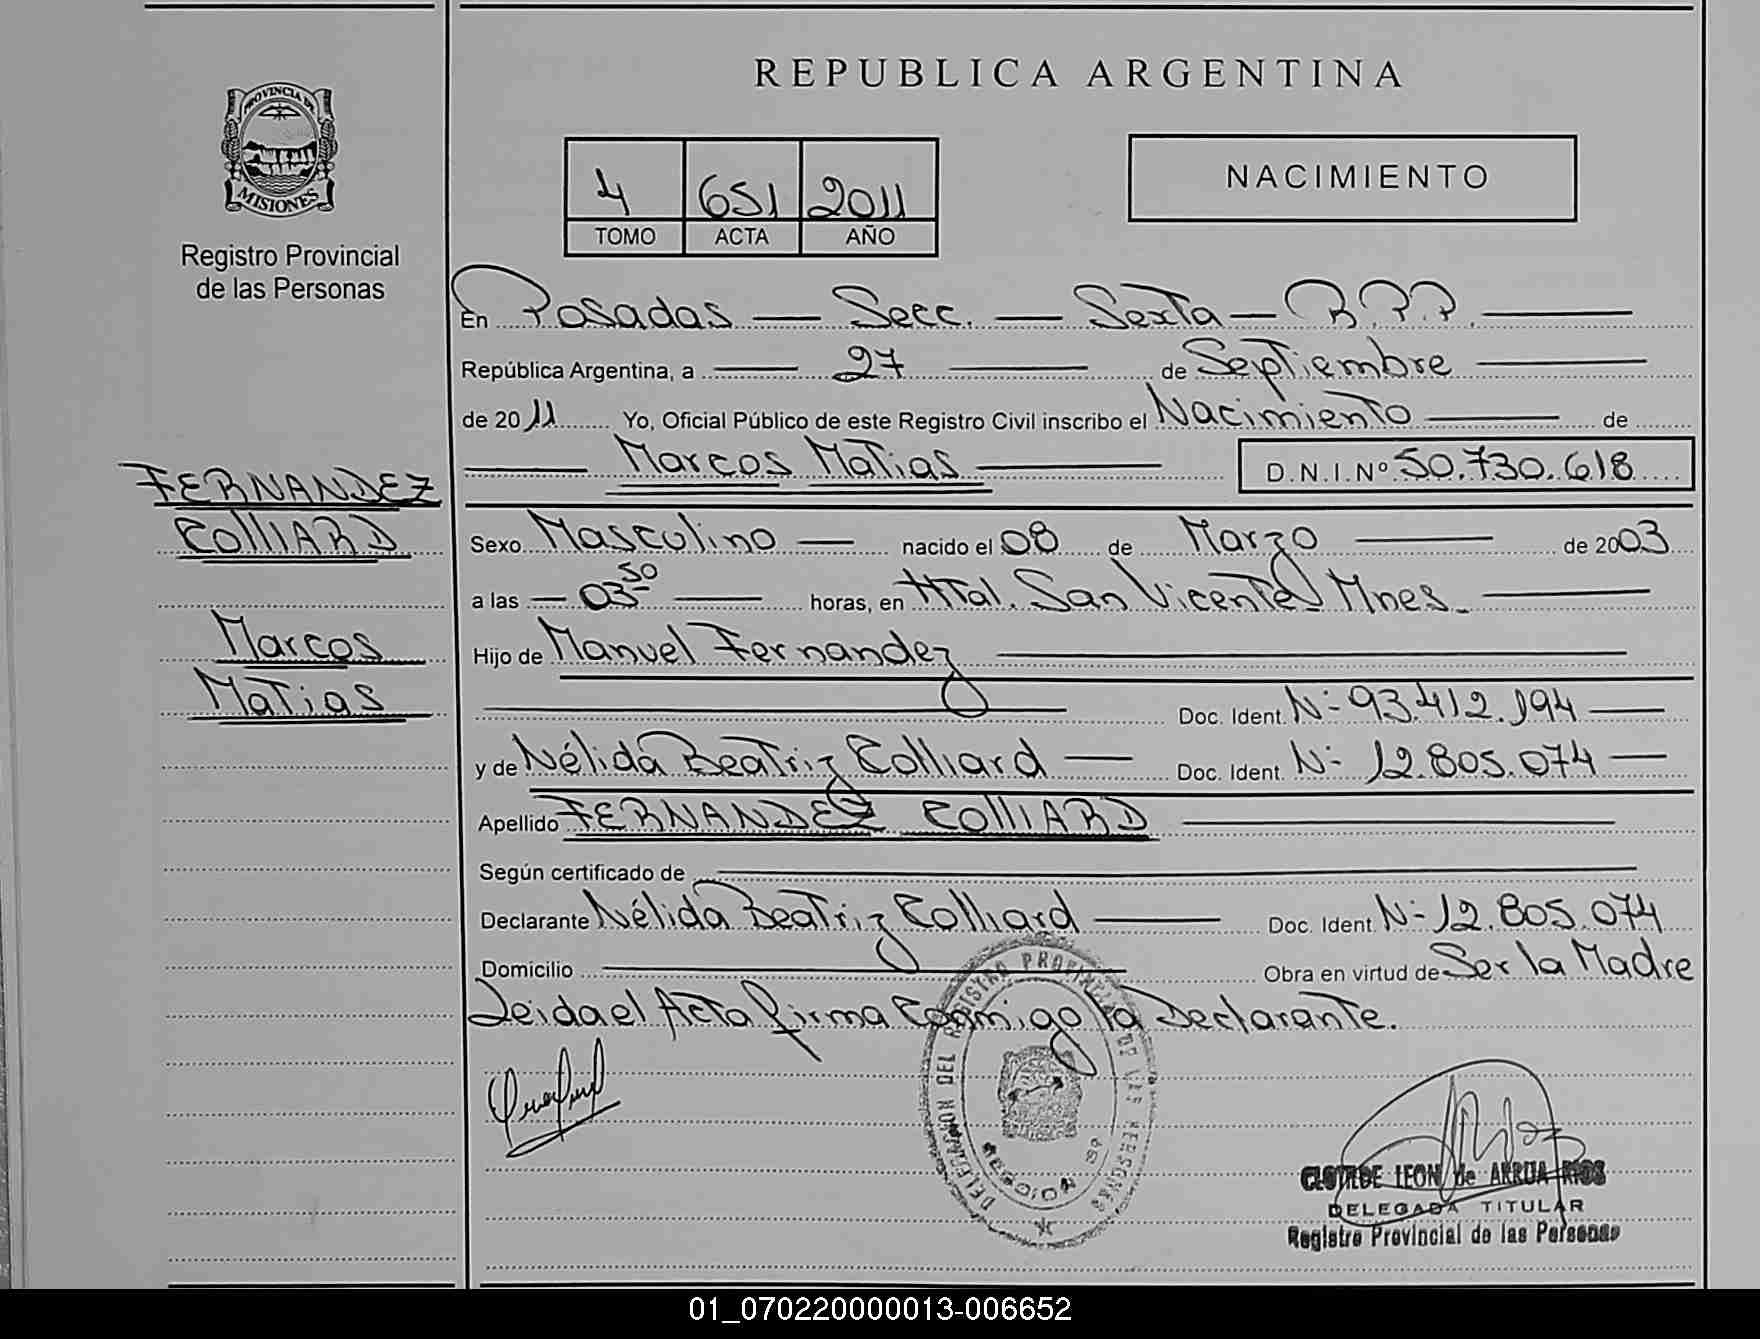 REPUBLICA ARGENTINA
PROVINCIA DE
MISIONES
Registro Provincial
de las Personas
4 651 2011
TOMO ACTA AÑO
NACIMIENTO
En Posadas — Secc. — Sexta — R.P.P.
República Argentina, a — 27 — de Septiembre
de 2011 Yo, Oficial Público de este Registro Civil inscribo el Nacimiento — de
Marcos Matias — D.N.I. Nº 50.730.618
FERNANDEZ
COLLIARD
Marcos
Matias
Sexo Masculino — nacido el 08 de Marzo — de 2003
a las — 03 50 — horas, en Htal. San Vicente Mnes.
Hijo de Manuel Fernandez
Doc. Ident. N- 93.412.194
y de Nélida Beatriz Colliard — Doc. Ident. N- 12.805.074
Apellido FERNANDEZ COLLIARD
Según certificado de
Declarante Nélida Beatriz Colliard — Doc. Ident. N- 12.805.074
Domicilio — Obra en virtud de Ser la Madre
Leida el Acta firma Conmigo la Declarante.
DELEGACION DEL REGISTRO PROVINCIAL DE LAS PERSONAS
CLOTILDE LEON de ARRUA RIOS
DELEGADA TITULAR
Registro Provincial de las Personas
01_070220000013-006652